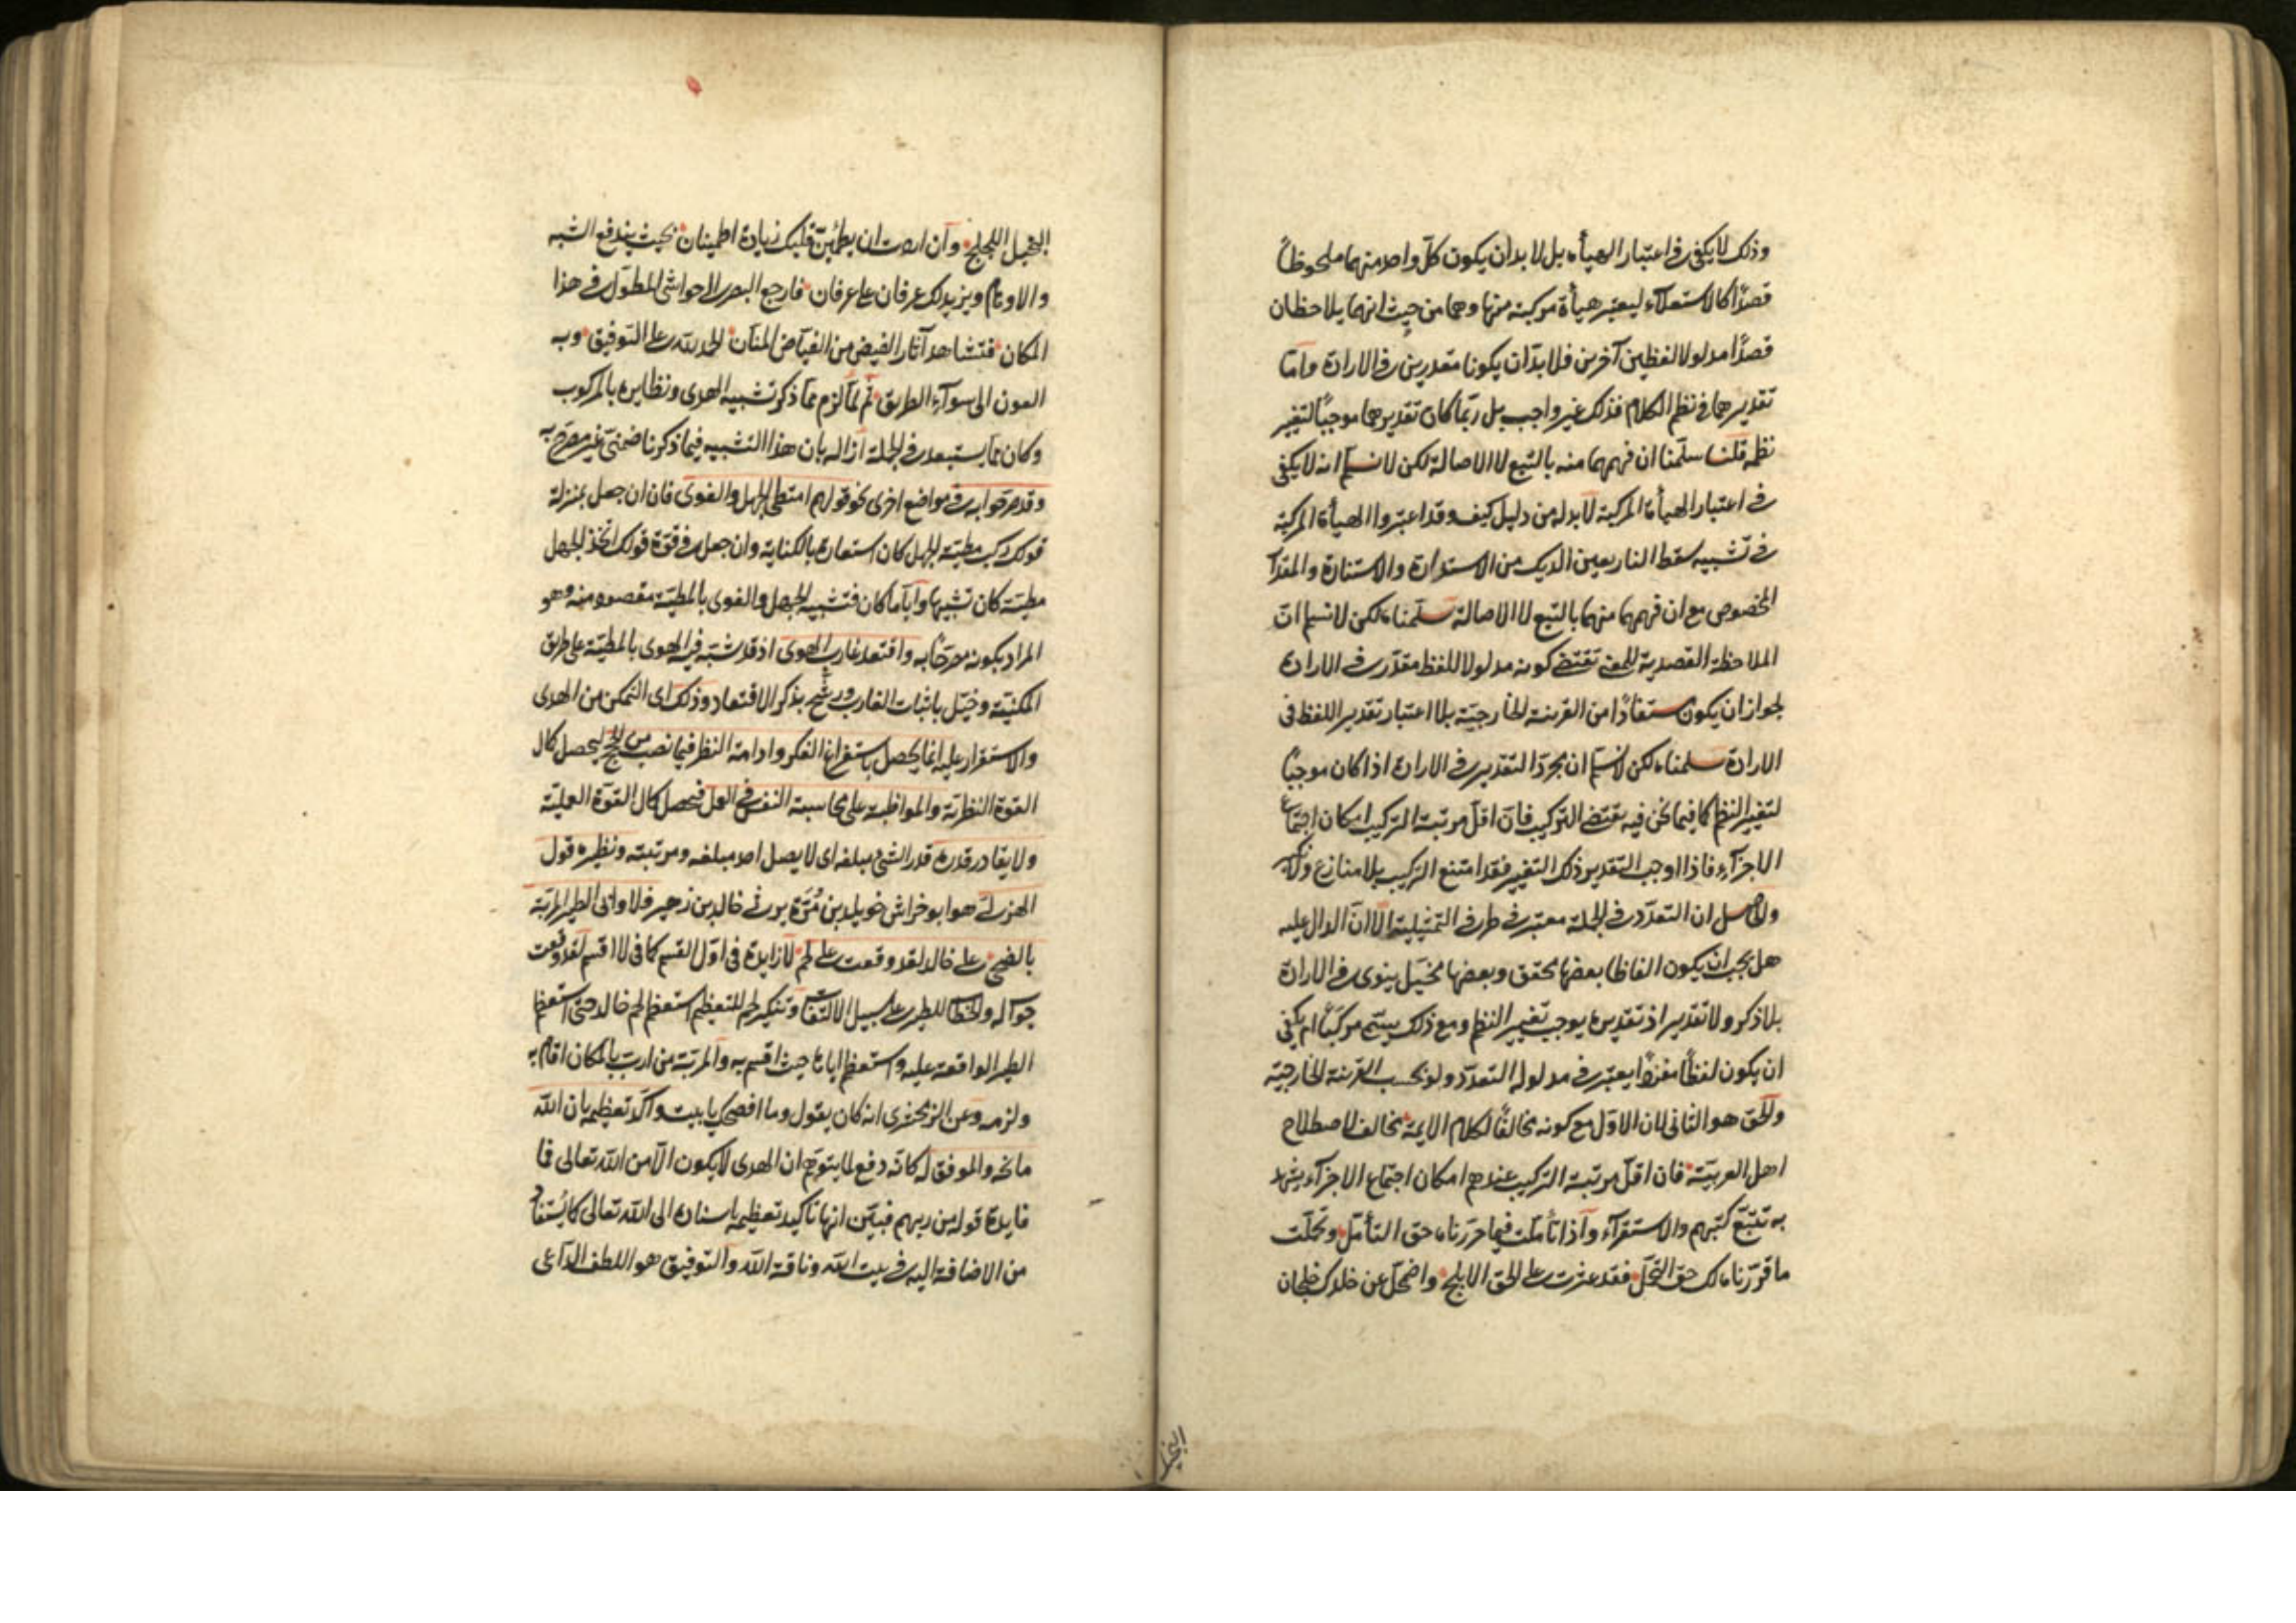 وذلك لا يكفى فى اعتبار الهيأة بل لا بد ان يكون كلّ واحد منهما ملحوظاً
قصدًا كالاستعلاء ليعتبر هيأة مركبة منها وهما من حيث انهما يلاحظان
قصدًا مدلولا لفظين آخرين فلا بدّ ان يكونا مقدرين فى الارادة وامّا
تقديرهما فى نظم الكلام فذلك غير واجب بل ربّما كان تقديرهما موجبًا لتغير
نظمه قلنا سلّمنا ان فهمهما منه بالتبع لا الاصالة لكن لا نسلّم انه لا يكفى
فى اعتبار الهيأة المركبة لا بد له من دليل كيف وقد اعتبروا الهيأة المركبة
فى تشبيه سقط النار بعين الديك من الاستدارة والاستنارة والمقدار
المخصوص مع ان فهمهما منهما بالتبع لا الاصالة سلّمناه لكن لا نسلم انّ
الملاحظة القصدية للمعنى تقتضى كونه مدلولا للفظ مقدّر فى الارادة
لجواز ان يكون مستفادًا من القرينة الخارجيّة بلا اعتبار تقدير اللفظ فى
الارادة سلمناه لكن لا نسلّم ان مجرّد التقدير فى الارادة اذا كان موجبًا
لتغير النظم كما فيما نحن فيه يقتضى التركيب فانّ اقلّ مرتبة التركيب امكان اجتماع
الاجزاء فاذا اوجب التقدير ذلك التغير فقد امتنع التركيب بلا منازع
والحاصل ان التعدّد فى الجملة معتبر فى طرفى التمثيلية الّا انّ الدال عليه
هل يجب ان يكون الفاظا بعضها محقق وبعضها مخيّل ينوى فى الارادة
بلا ذكر ولا تقدير اذ تقديره يوجب تغيير النظم ومع ذلك يسمّى مركبًا ام يكفى
ان يكون لفظًا مفردًا يعتبر فى مدلوله التعدّد ولو بحسب القرينة الخارجيّة
والحق هو الثانى لان الاوّل مع كونه مخالفًا لكلام الايمة مخالف لاصطلاح
اهل العربيّة فان اقلّ مرتبة التركيب عندهم امكان اجتماع الاجزاء يشهد
به تتبّع كتبهم والاستقراء واذا تأملت فيما حرّرناه حق التأمّل وتحلّت
ما قرّرناه لك حق التحلّ فقد عثرت على الحق الابلج واضمحلّ عن خلدك خلجان
البخيل
البخيل اللجلج وان اردت ان يطمئنّ قلبك زيادة اطمينان بحيث يندفع الشبه
والاوهام ويزيد لك عرفان على عرفان فارجع البصر الى حواشى المطوّل فى هذا
المكان فتشاهد آثار الفيض من الفيّاض المنّان الحمد لله على التوفيق وبه
العون الى سواء الطريق ثم لمّا لزم ممّا ذكر تشبيه الهدى ونظايره بالمركوب
وكان ممّا يستبعد فى الجملة ازاله بان هذا التشبيه فيما ذكرنا ضمنىّ غير مصرّح به
وقد صرّحوا به فى مواضع اخرى نحو قولهم امتطى الجهل والغوى فان ان جعل بمنزلة
قولك ركب مطيّة الجهل كان استعارة بالكناية وان جعل فى قوّة قولك اتّخذ الجهل
مطيّة كان تشبيها وايّاما كان فتشبيه الجهل والغوى بالمطيّة مقصود منه وهو
المراد بكونه مصرّحًا به واقتعد غارب الهوى اذ قد شبّه فيه الهوى بالمطيّة على طريق
المكنيّة وخيّل باثبات الغارب ورشّح بذكر الاقتعاد وذلك اى التمكن من الهدى
والاستقرار عليه انما يحصل باستفراغ الفكر وادامة النظر فيما نصب من الحجج ليحصل كمال
القوة النظريّة والمواظبة على محاسبة النفس فى العمل فيحصل كمال القوّة العمليّة
ولا يقادر قدره قدر الشئ مبلغه اى لا يصل احد مبلغه ومرتبته ونظيره قول
الهذلىّ هو ابو خراش خويلد بن مُرّة يرثى خالد بن زهير فلا وابى الطير المربّة
بالضحى على خالد لقد وقعت على لحم لا زايدة فى اوّل القسم كما فى لا اقسم لقد وقعت
جوابه والخطاب للطير على سبيل الالتفات وتنكير لحم للتعظيم استعظم لحم خالد حتى استعظم
الطير الواقعة عليه واستعظم اباها حيث اقسم به والمربّة من ارب بالمكان اقام به
ولزمه وعن الزمخشرى انه كان يقول وما افصحك يا بيت واكد تعظيمه بان الله
مانحه والموفق له كانّه دفع لما يتوهم ان الهدى لا يكون الّا من الله تعالى فما
فايدة قوله من ربهم فبيّن انها تأكيد تعظيمه باسناده الى الله تعالى كما يُستفاد
من الاضافة اليه فى بيت الله وناقة الله والتوفيق هو اللطف الداعى